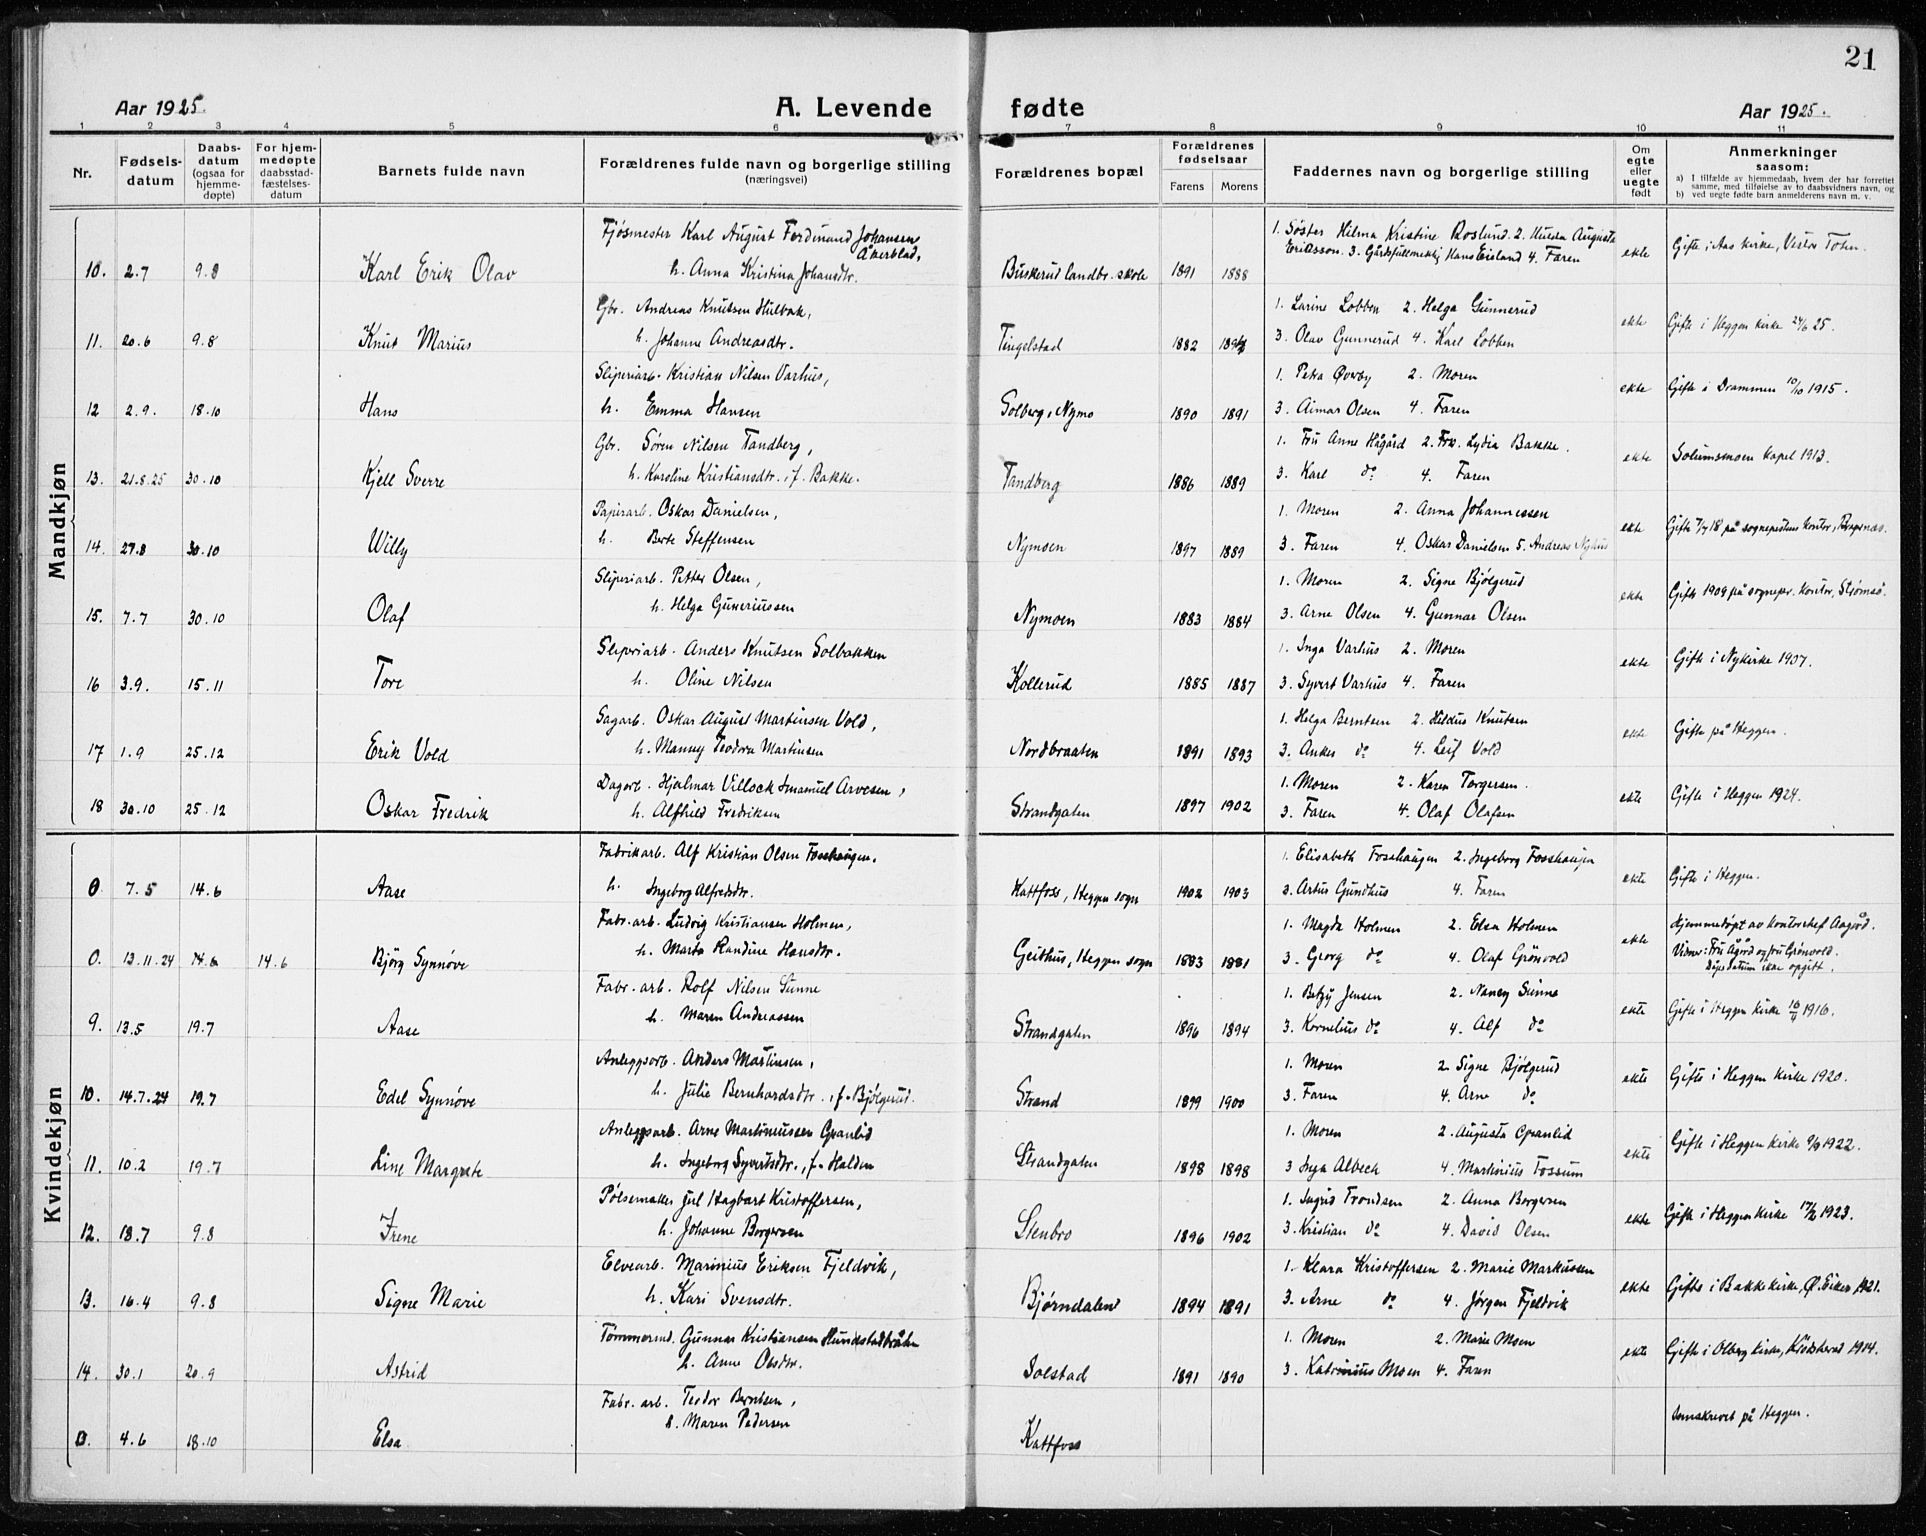 21
Aar 1925. A. Levende fødte Aar 1925.
1 2 3 4 5 6 7 8 9 10 11
Nr. Fødselsdatum Daabsdatum (ogsaa for hjemmedøpte) For hjemmedøpte daabsstadfæstelsesdatum Barnets fulde navn Forældrenes fulde navn og borgerlige stilling (næringsvei) Forældrenes bopæl Forældrenes fødselsaar Farens Morens Faddernes navn og borgerlige stilling Om egte eller uegte født Anmerkninger saasom:
a) I tilfælde av hjemmedaab, hvem der har forrettet samme, med tilføielse av to daabsvidners navn, og
b) ved uegte fødte barn anmelderens navn m. v.
Mandkjøn
Fjøsmester Karl August Ferdinand Johansen Åkerblad, 1. Søster Hilma Kristine Roslund 2. Hulda Augusta
Eriksson 3. Gårdsfullmektig Hans Eisland 4. Faren ekte Gifte i Aas kirke, Vestre Toten.
10. 2.7 9.8 Karl Erik Olav h. Anna Kristina Johansdtr. Buskerud landbr. skole 1891 1888
Gbr. Andreas Knutsen Hulbak, 1. Larine Lobben 2. Helga Gunnerud ekte Gifte i Heggen kirke 24/6 25.
11. 20.6 9.8 Knut Marius h. Johanne Andreasdtr. Tingelstad 1882 3. Olav Gunnerud 4. Karl Lobben
Sliperiarb. Kristian Nilsen Varhus, 1. Petra Øverby 2. Moren ekte Gifte i Drammen 10/10 1915.
12 2.9. 18.10 Hans h. Emma Hansen Solberg, Nymo 1890 1891 3. Aimar Olsen 4. Faren
Gbr. Søren Nilsen Tandberg, 1. Fru Anne Hågård 2. Frk. Lydia Bakke. ekte Solumsmoen kapel 1913.
13. 21.8.25 30.10 Kjell Sverre h. Karoline Kristiansdtr., f. Bakke. Tandberg 1886 1889 3. Karl do 4. Faren
Papirarb. Oskar Danielsen, 1. Moren 2. Anna Johannessen ekte Gifte 7/7 18 på sogneprestens kontor, Bragernæs.
14. 27.8 30.10 Willy h. Berte Steffensen Nymoen 1897 1889 3. Faren 4. Oskar Danielsen 5. Andreas Nyhus
Sliperiarb. Petter Olsen, 1. Moren 2. Signe Bjølgerud ekte Gifte 1909 på sognepr. kontor, Strømsø.
15. 7.7 30.10 Olaf h. Helga Guneriussen Nymoen 1883 1884 3. Arne Olsen 4. Gunnar Olsen
Sliperiarb. Anders Knutsen Solbakken 1. Inga Varhus 2. Moren ekte Gifte i Nykirke 1907.
16 3.9. 15.11 Tore h. Oline Nilsen Kollerud 1885 1887 3. Syvert Varhus 4. Faren
Sagarb. Oskar August Martinsen Vold, 1. Helga Berntsen 2. Hildus Knutsen ekte Gifte på Heggen.
17 1.9 25.12 Erik Vold h. Manny Teodora Martinsen Nordbraaten 1891 1893 3. Anker do 4. Leif Vold
Dagarb. Hjalmar Villock Imanuel Arvesen, 1. Moren 2. Karen Torgersen. ekte Gifte i Heggen 1924.
18 30.10 25.12 Oskar Fredrik h. Alfhild Fredriksen Strandgaten 1897 1902 3. Faren 4. Olaf Olafsen
Kvindekjøn
Fabrikarb. Alf Kristian Olsen Fosshaugen. 1. Elisabeth Fosshaugen 2. Ingeborg Fosshaugen ekte Gifte i Heggen.
0 7.5 14.6 Aase h. Ingeborg Alfredsdtr. Kattfoss, Heggen sogn 1902 1903 3. Artus Gundhus 4. Faren
Fabr. arb. Ludvig Kristiansen Holmen, 1. Magda Holmen 2. Elsa Holmen ekte Hjemmedøpt av kontorchef Aagård.
Vidner: Fru Ågård og fru Grönvold.
0. 13.11.24 14.6 14.6 Bjørg Synnøve h. Marta Randine Hansdtr. Geithus, Heggen sogn 1883 1881 3. Georg do 4. Olaf Grönvold Døpedatum ikke opgitt.
Fabr. arb. Rolf Nilsen Sunne 1. Betzy Jensen 2. Nancy Sunne ekte Gifte i Heggen kirke 16/4 1916.
9. 13.5 19.7 Aase h. Maren Andreassen Strandgaten 1896 1894 3. Kornelius do 4. Alf do
Anleggsarb. Anders Martinsen, 1. Moren 2. Signe Bjølgerud ekte Gifte i Heggen kirke 1920.
10. 14.7.24 19.7 Edel Synnøve h. Julie Bernhardsdtr., f. Bjølgerud. Strand 1899 1900 3. Faren 4. Arne do
Anleggsarb. Arne Martiniussen Granlid 1. Moren 2. Augusta Granlid ekte Gifte i Heggen kirke 9/9 1922.
11. 10.2 19.7 Line Margrete h. Ingeborg Syvertsdtr., f. Halden Strandgaten 1898 1898 3 Inga Albeck 4. Martinius Fossum
Pølsemaker Jul Hagbart Kristoffersen, 1. Ingrid Trondsen 2. Anna Borgersen ekte Gifte i Heggen kirke 17/2 1923.
12. 18.7 9.8 Irene h. Johanne Borgersen Stenbro 1896 1902 3. Kristian do 4. David Olsen
Elvearb. Marinius Eriksen Fjeldvik, 1. Klara Kristoffersen 2. Marie Markussen ekte Gifte i Bakke kirke, Ø. Eiker 1921.
13. 16.4 9.8 Signe Marie h. Kari Svensdtr. Bjørndalen 1894 1891 3. Arne do 4. Jørgen Fjeldvik
Tømmermd. Gunnar Kristiansen Hundstadbråten 1. Moren 2. Marie Moen ekte Gifte i Olberg kirke, Krødsherad 1914.
14. 30.1 20.9 Astrid h. Anne Olsdtr. Solstad 1891 1890 3. Katrinius Moen 4. Faren
Fabr. arb. Teodor Berntsen, Innskrevet på Heggen.
0. 4.6 18.10 Elsa h. Maren Pedersen Kattfoss